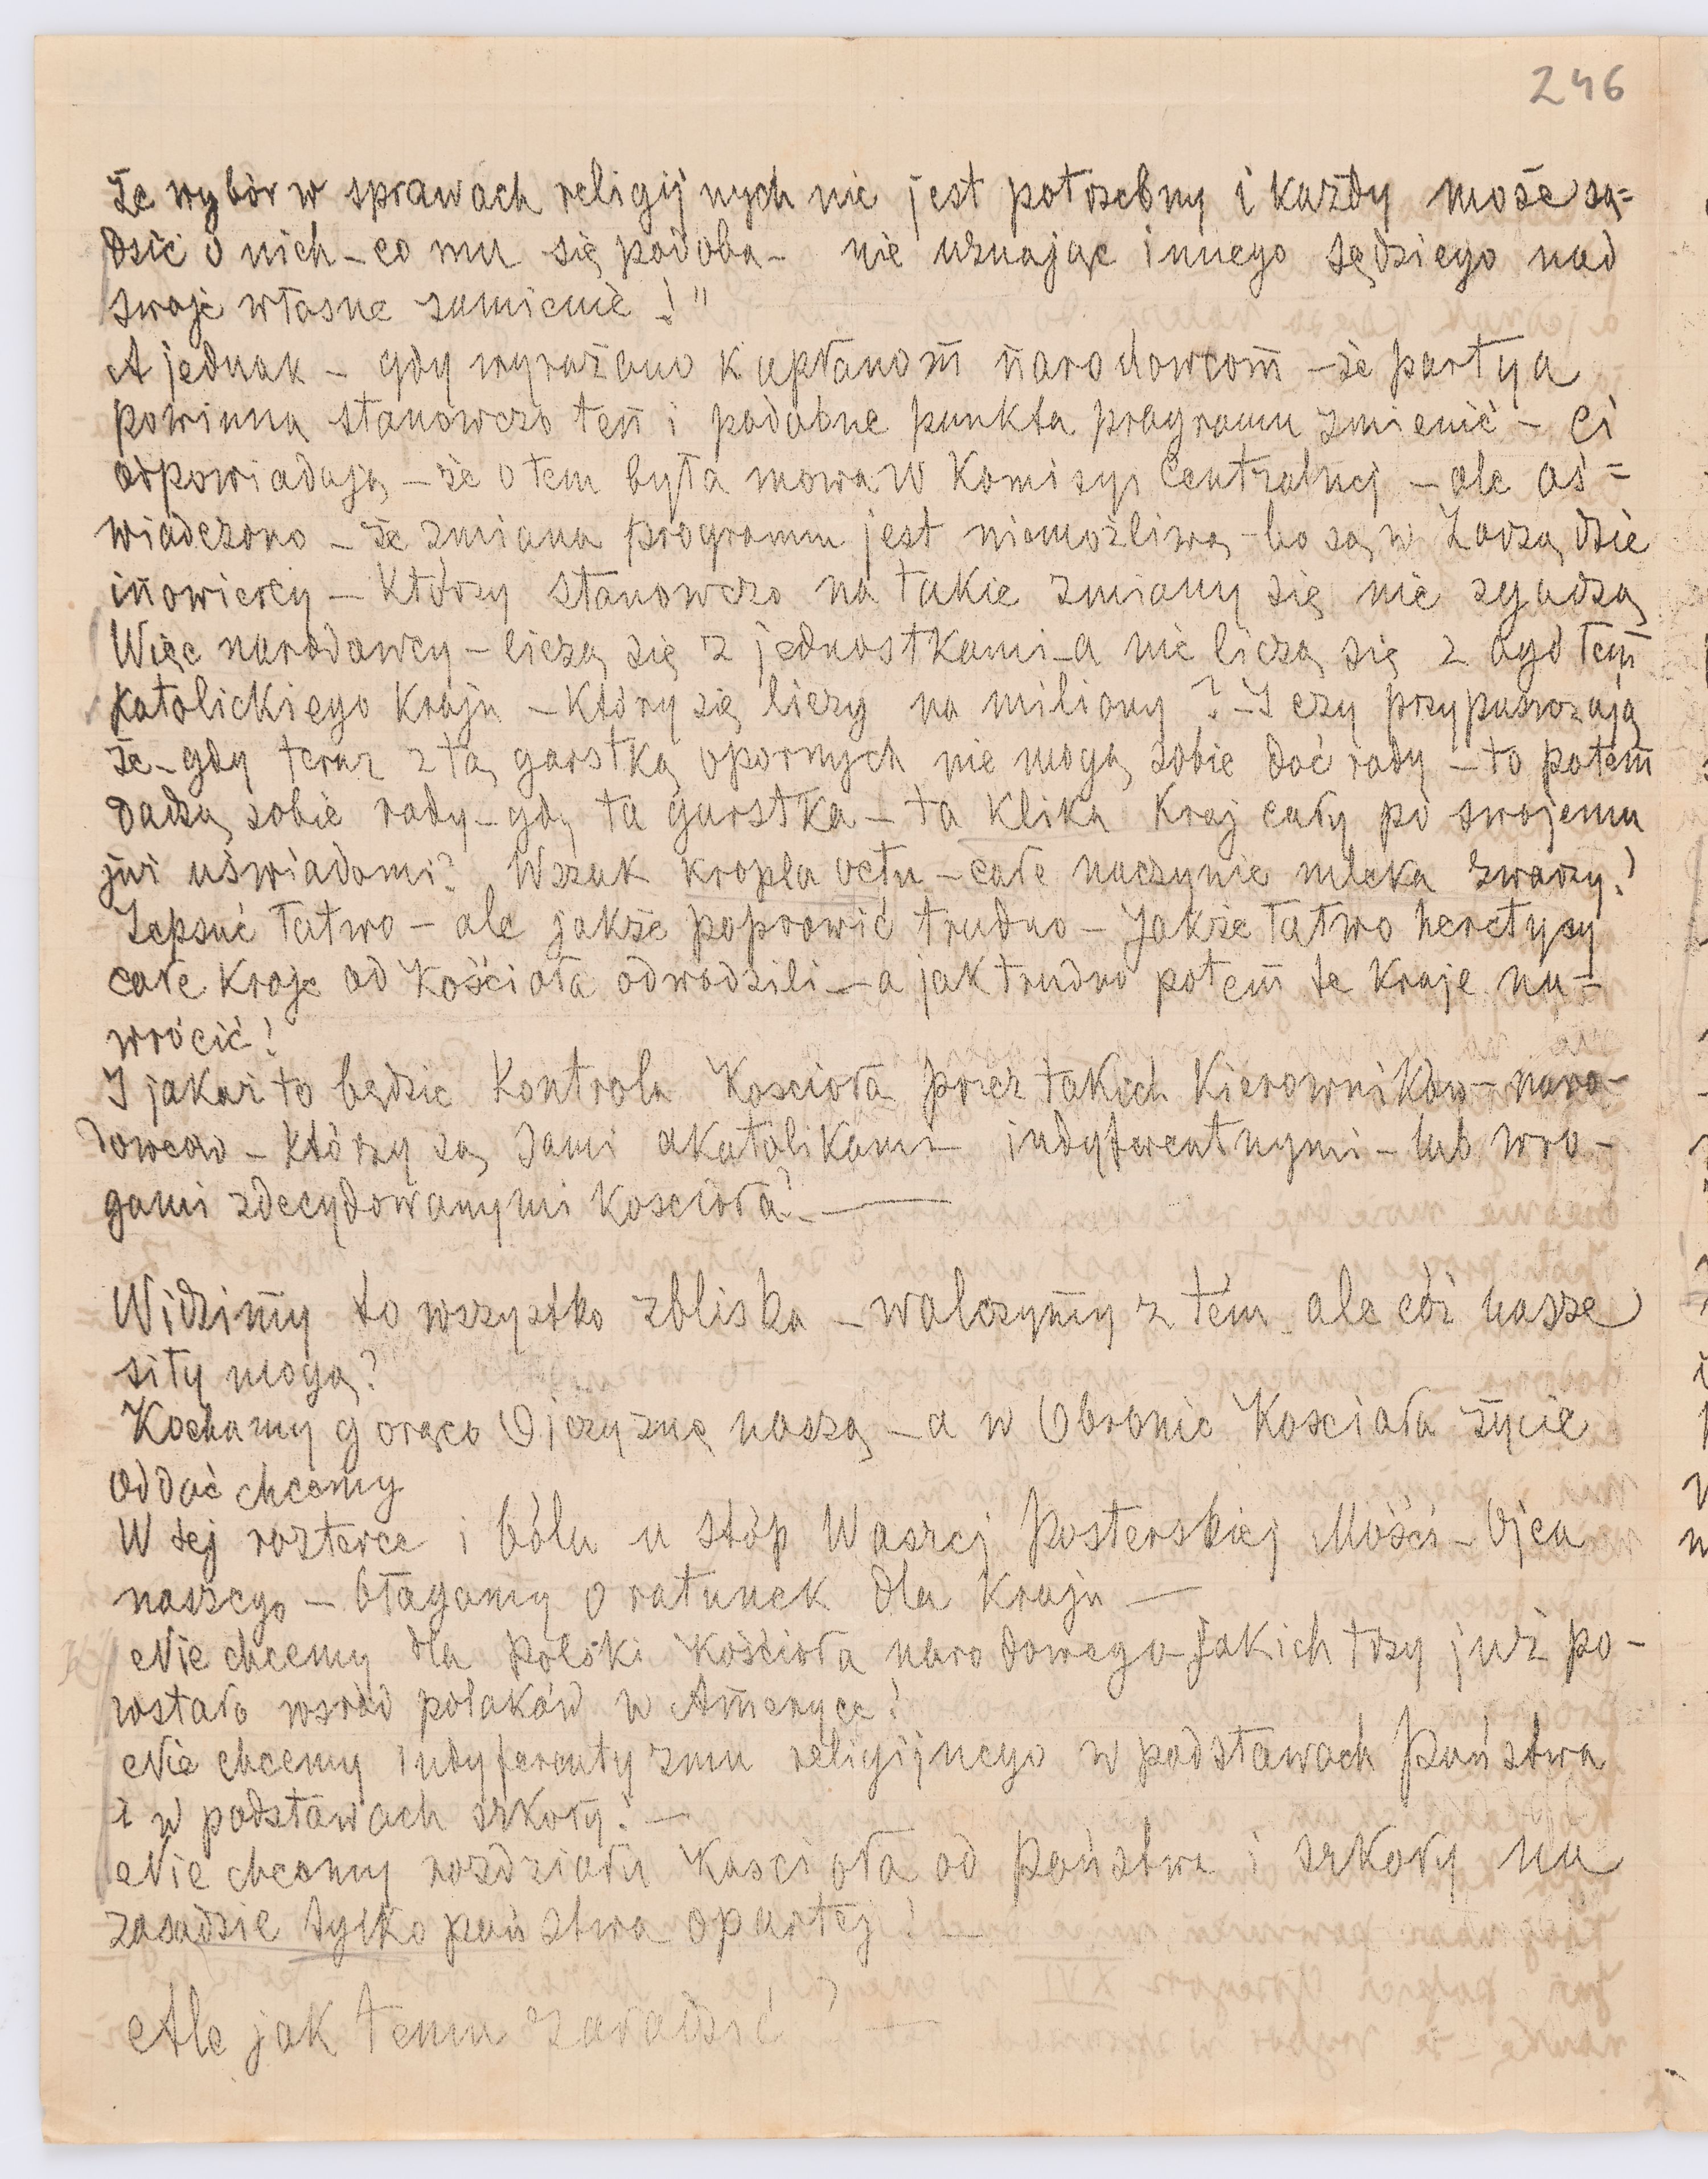 246
że wybór w sprawach religijnych nie jest potrzebny i każdy może są=
dzić o nich – co mu się podoba – nie uznając innego sędziego nad
swoje własne sumienie!"
A jednak – gdy wyrażano kapłanom narodowcom – że partya
powinna stanowczo ten i podobne punkta programu zmienić – Ci
odpowiadają – że o tem była mowa w Komisyi Centralnej – ale oś=
wiadczono – że zmiana programu jest niemożliwą – bo są w Zarządzie
inowiercy – którzy stanowczo na takie zmiany się nie zgadzą
Więc narodowcy – liczą się z jednostkami – a nie liczą się z ogółem
katolickiego kraju – który się liczy na miliony? – I czy przypuszczają
że – gdy teraz z tą garstką opornych nie mogą sobie dać rady – to potem
dadzą sobie rady – gdy ta garstka – ta klika kraj cały po swojemu
już uświadomi? Wszak kropla octu – całe naczynie mleka zwarzy!
Zepsuć łatwo – ale jakże poprawić trudno – Jakże łatwo heretycy
całe kraje od Kościoła odwodzili – a jak trudno potem te kraje na=
wrócić!
I jakaż to będzie kontrola Kościoła przez takich kierowników – naro-
dowców – którzy są sami akatolikami – indyferentnymi – lub wro-
gami zdecydowanymi Kościoła? –
Widzimy to wszystko zbliska – walczymy z tém – ale cóż nasze
siły mogą?
Kochamy gorąco Ojczyznę naszą – a w Obronie Kościoła życie
oddać chcemy
W tej rozterce i bólu u stóp Waszej Pasterskiej Mości – Ojca
naszego – błagamy o ratunek dla kraju –
Nie chcemy dla Polski Kościoła narodowego – jakich trzy już po-
wstało wśród polaków w Ameryce!
Nie chcemy indyferentyzmu religijnego w podstawach Państwa
i w podstawach szkoły! –
Nie chcemy rozdziału Kościoła od państwa i szkoły na
zasadzie tylko państwa opartej! –
Ale jak temu zaradzić? –